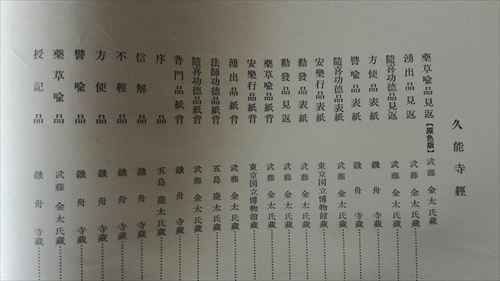 久能寺經
藥草喩品見返【原色版】 武藤金太氏藏
湧出品見返 武藤金太氏藏
隨喜功德品見返 武藤金太氏藏
方便品表紙 鐵舟寺藏
譬喩品表紙 鐵舟寺藏
隨喜功德品表紙 武藤金太氏藏
安樂行品表紙 東京国立博物館藏
勸發品表紙 武藤金太氏藏
勸發品見返 武藤金太氏藏
藥草喩品紙背 武藤金太氏藏
安樂行品紙背 東京国立博物館藏
湧出品紙背 武藤金太氏藏
法師功德品紙背 五島慶太氏藏
隨喜功德品紙背 武藤金太氏藏
普門品紙背 鐵舟寺藏
序品 五島慶太氏藏
信解品 鐵舟寺藏
不輕品 鐵舟寺藏
方便品 鐵舟寺藏
譬喩品 鐵舟寺藏
藥草喩品 武藤金太氏藏
授記品 鐵舟寺藏